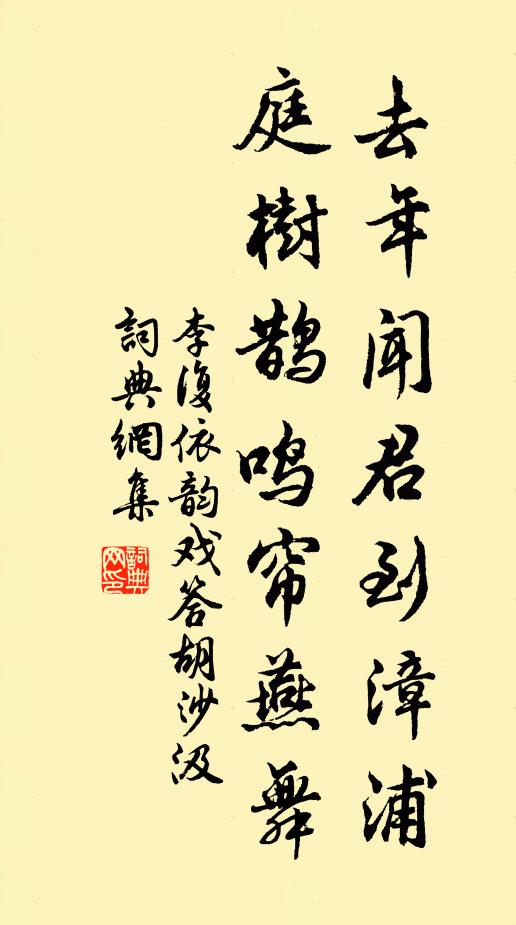 去年闻君到漳浦
庭樹鹊鳴帘燕舞
李復依韵戏答胡沙汲
詞典網集
詞典网印